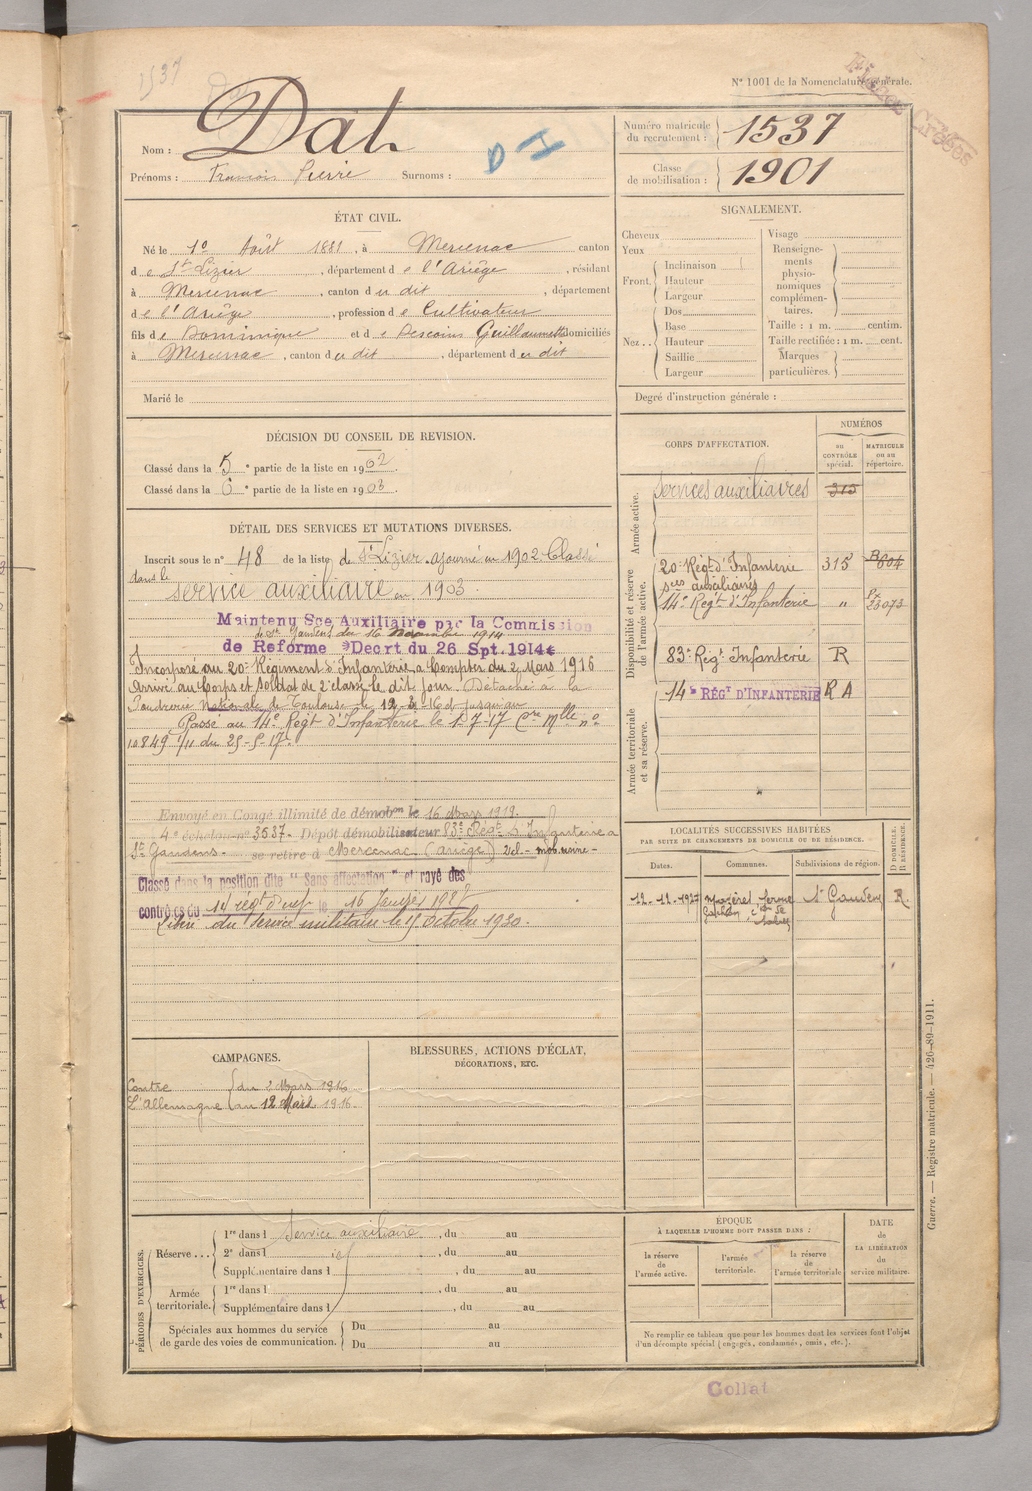 1537
N° 1001 de la Nomenclature générale.
Nom : Dat
D I
Prénoms : François Pierre Surnoms :
Numéro matricule du recrutement : 1537
Classe de mobilisation : 1901
ÉTAT CIVIL.
Né le 10 Août 1881, à Mercenac canton
d e St Lizier, département d e l'Ariège, résidant
à Mercenac, canton d u dit, département
d e l'Ariège, profession d e Cultivateur
fils d e Dominique et d e Descoins Guillaumette domiciliés
à Mercenac, canton d u dit, département d u dit
Marié le
SIGNALEMENT.
Cheveux
Yeux
Front. Inclinaison
Hauteur
Largeur
Nez. Dos
Base
Hauteur
Saillie
Largeur
Visage
Renseignements physionomiques complémentaires.
Taille : 1 m. centim.
Taille rectifiée : 1 m. cent.
Marques particulières.
Degré d'instruction générale :
DÉCISION DU CONSEIL DE REVISION.
Classé dans la 5e partie de la liste en 1902.
Classé dans la 6e partie de la liste en 1903.
DÉTAIL DES SERVICES ET MUTATIONS DIVERSES.
Inscrit sous le n° 48 de la liste de St Lizier. Ajourné en 1902. Classé
dans le
service auxiliaire en 1903.
Maintenu Sce Auxiliaire par la Commission
de St Gaudens du 16 Novembre 1914
de Reforme Decrt du 26 Spt. 1914
Incorporé au 20e Régiment d'Infanterie à Compter du 2 Mars 1916
Arrivé au Corps et Soldat de 2e classe le dit Jour. Détaché à la
Poudrerie Nationale de Toulouse le 12-3-16 d jusqu'au
Passé au 14e Regt d'Infanterie le 1-7-17 mlle n°
10849 1/11 du 25-5-17.
Envoyé en Congé illimité de démobon le 16 Mars 1919.
4e échelon n° 3537. Dépôt démobilisateur 83e Regt d'Infanterie à
St Gaudens. se retire à Mercenac (Ariège)
Classé dans la position dite "Sans affectation" et rayé des
contrôles du 14 régt d'inf le 16 Janvier
Libéré du service militaire le 15 Octobre 1930.
CORPS D'AFFECTATION.
NUMÉROS
au CONTRÔLE spécial.
MATRICULE ou au répertoire.
Armée active.
services auxiliaires 315
Disponibilité et réserve de l'armée active.
20e Regt d'Infanterie 315 604
ces auxiliaires
14e Regt d'Infanterie " 23073
83e Regt Infanterie R
Armée territoriale et sa réserve.
14e RÉGt D'INFANTERIE R A
LOCALITÉS SUCCESSIVES HABITÉES
PAR SUITE DE CHANGEMENTS DE DOMICILE OU DE RÉSIDENCE.
Dates. Communes. Subdivisions de région. D DOMICILE. R RÉSIDENCE.
12-12-1927 St Gaudens R.
CAMPAGNES.
Contre l'Allemagne
du 2 Mars 1916
au 12 Mars 1916.
BLESSURES, ACTIONS D'ÉCLAT,
DÉCORATIONS, ETC.
PÉRIODES D'EXERCICES.
Réserve ... 1re dans l Service auxiliaire, du au
2e dans l id, du au
Supplémentaire dans l, du au
Armée territoriale. 1re dans l, du au
Supplémentaire dans l, du au
Spéciales aux hommes du service
de garde des voies de communication.
Du au
Du au
ÉPOQUE
À LAQUELLE L'HOMME DOIT PASSER DANS :
la réserve de l'armée active.
l'armée territoriale.
la réserve de l'armée territoriale
DATE de LA LIBÉRATION du service militaire.
Ne remplir ce tableau que pour les hommes dont les services font l'objet
d'un décompte spécial (engagés, condamnés, omis, etc.).
Guerre. — Registre matricule. — 426-89-1911.
Collat